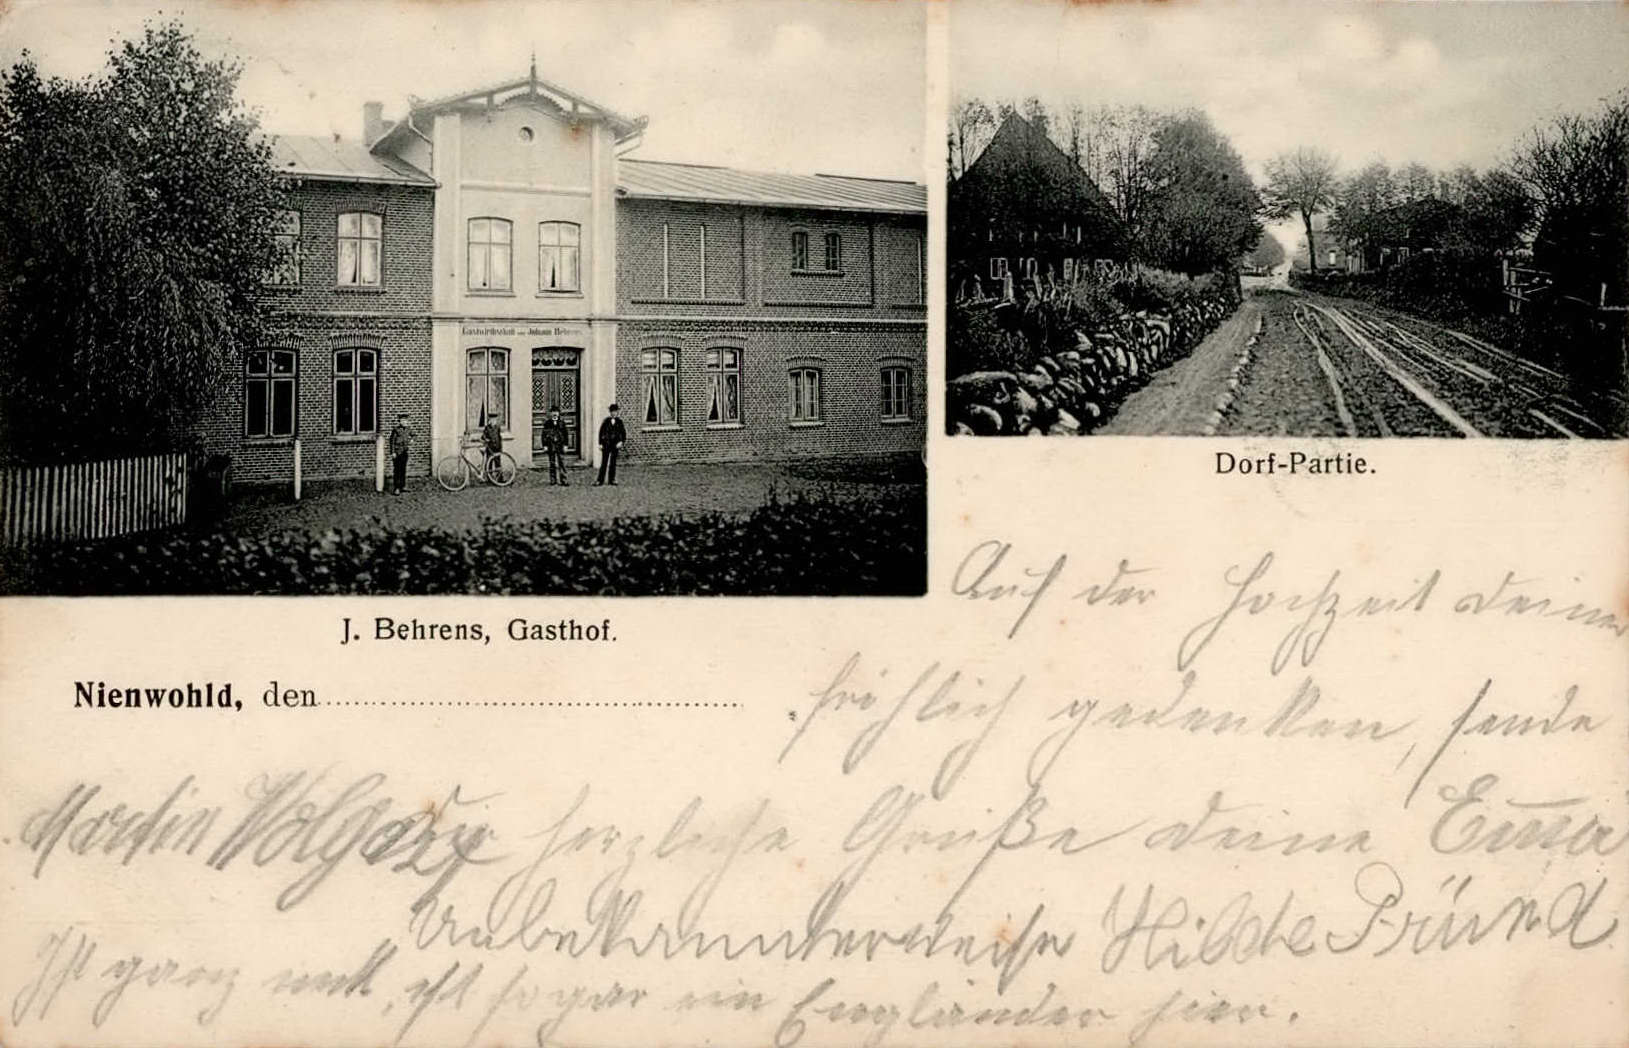 Gastwirthschaft von Johann Behrens
Dorf-Partie.
J. Behrens, Gasthof.
Nienwohld, den
Auf der Hochzeit deiner
fröhlich gedenken, sende
herzliche Grüße deine Emma
Martin
Unbekannterweise Hilde
Ist ganz nett, ist sogar ein Engländer hier.